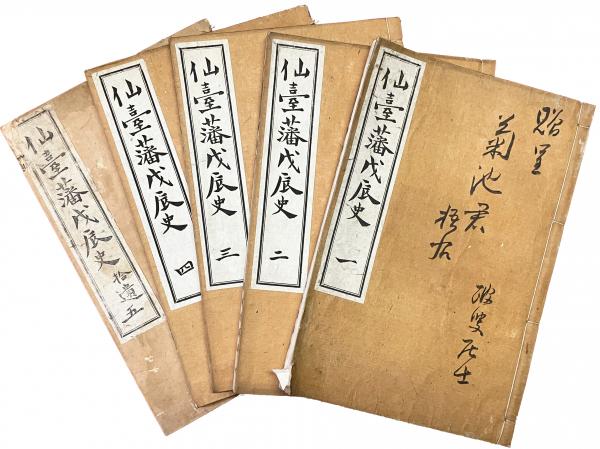 贈呈
菊池君
梧右
居士
仙臺藩戊辰史 一
仙臺藩戊辰史 二
仙臺藩戊辰史 三
仙臺藩戊辰史 四
仙臺藩戊辰史 拾遺 五